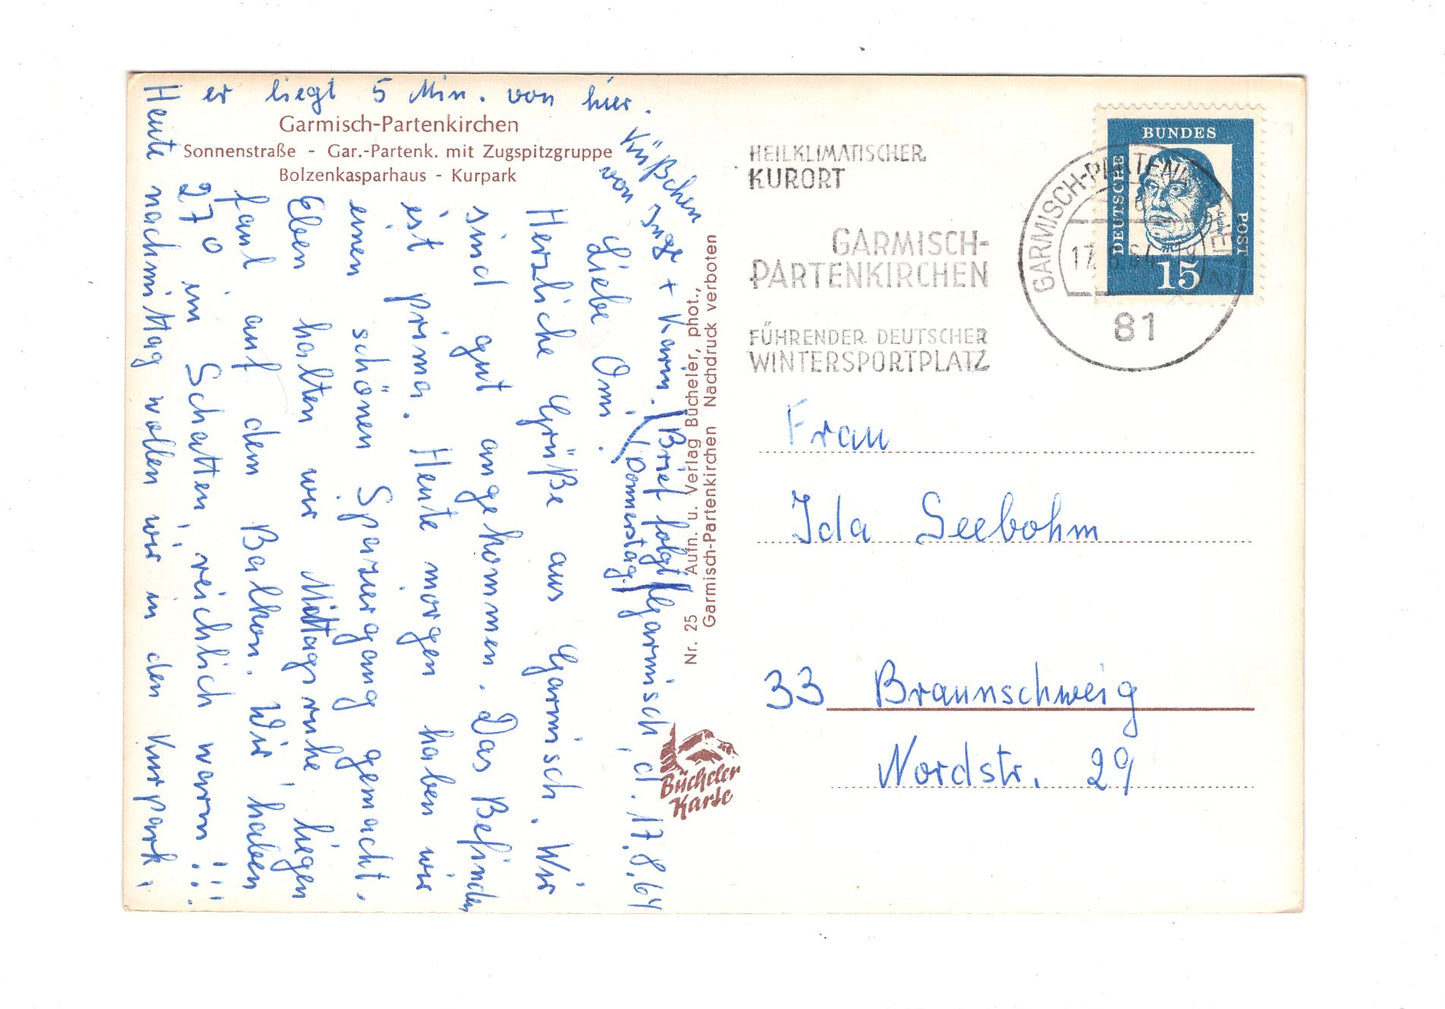 Garmisch-Partenkirchen
Sonnenstraße - Gar.-Partenk. mit Zugspitzgruppe
Bolzenkasparhaus - Kurpark
Garmisch, d. 17.8.64
Liebe Omi.
Herzliche Grüße aus Garmisch. Wir
sind gut angekommen. Das Befinden
ist prima. Heute morgen haben wir
einen schönen Spaziergang gemacht.
Eben halten wir Mittagsruhe, liegen
faul auf dem Balkon. Wir haben
27° im Schatten, reichlich warm!!!
Heute nachmittag wollen wir in den Kurpark,
er liegt 5 Min. von hier.
Küßchen
von Inge + Karin.
(Brief folgt
(Donnerstag)
Nr. 25 Aufn. u. Verlag Bücheler, phot.,
Garmisch-Partenkirchen Nachdruck verboten
Bücheler
Karte
HEILKLIMATISCHER
KURORT
GARMISCH-
PARTENKIRCHEN
FÜHRENDER DEUTSCHER
WINTERSPORTPLATZ
GARMISCH-PARTENKIRCHEN
81
DEUTSCHE
BUNDES
POST
15
Frau
Ida Seebohm
33 Braunschweig
Nordstr. 29